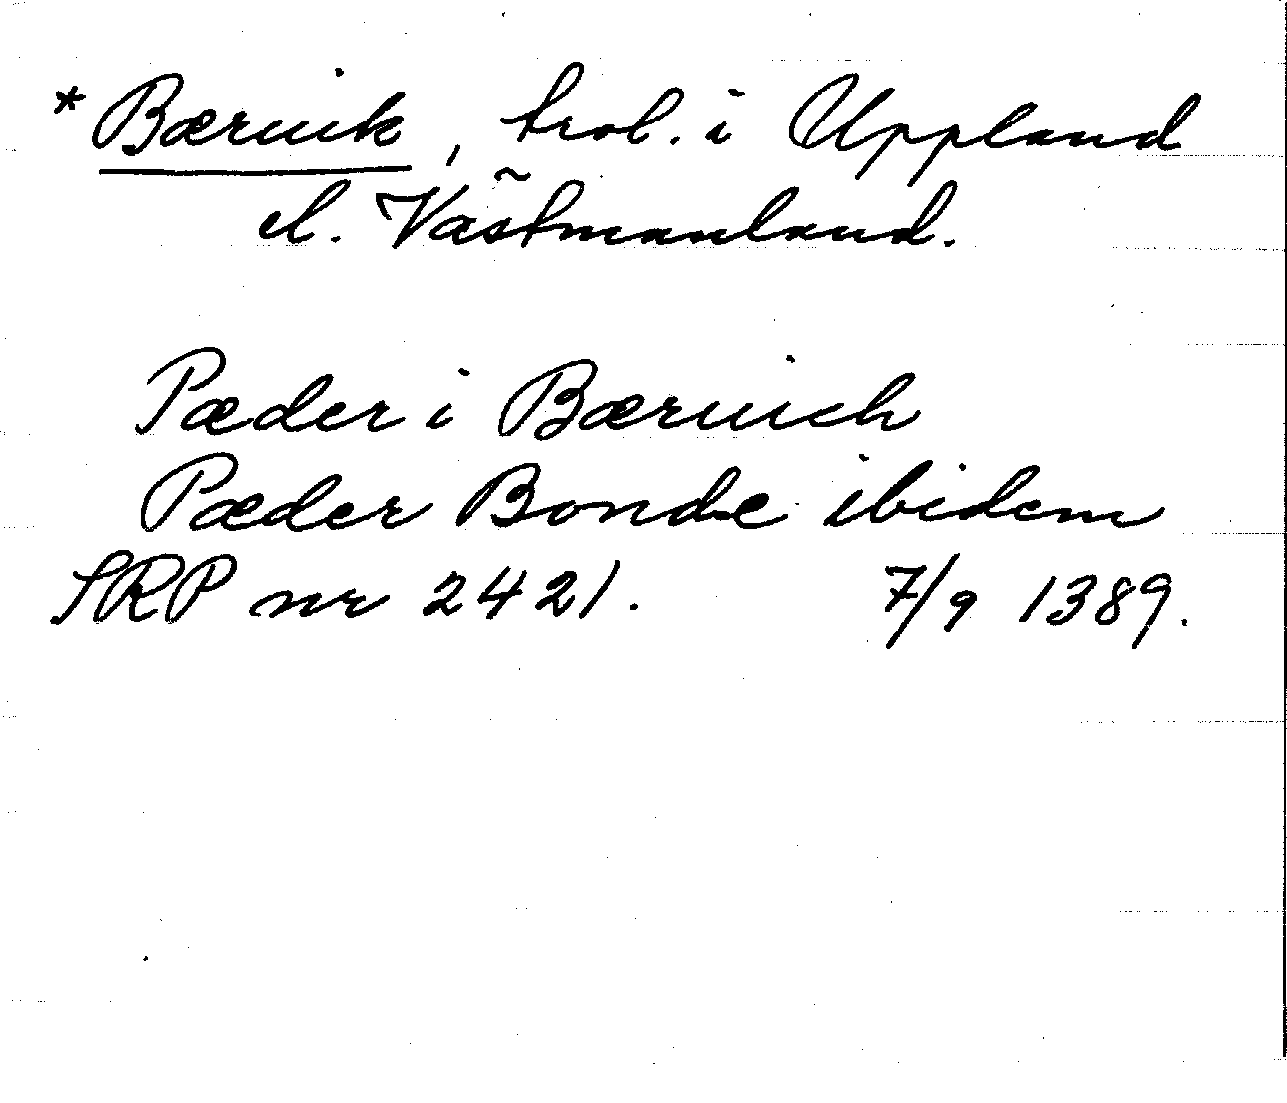 *Bæruik, trol. i Uppland
el. Västmanland.
Pæder i Bæruich
Pæder Bonde ibidem
SRP nr 2421. 7/9 1389.